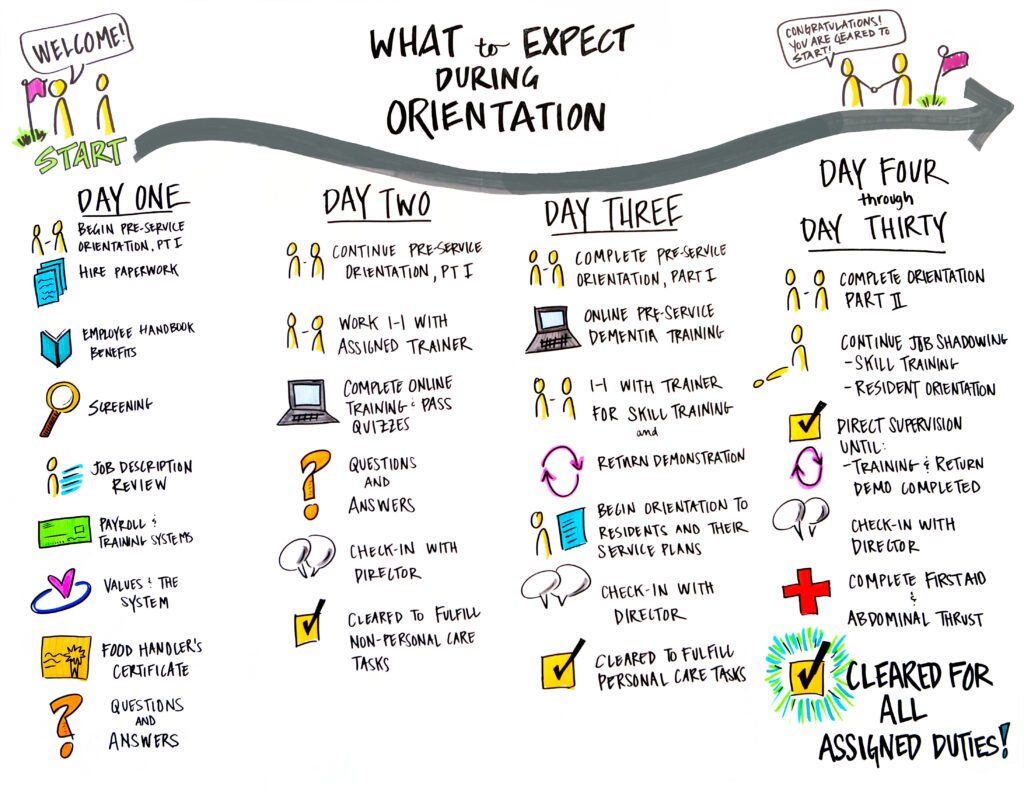 WELCOME!
START
WHAT to EXPECT
DURING
ORIENTATION
CONGRATULATIONS!
YOU ARE CLEARED TO
START!
DAY ONE
BEGIN PRE-SERVICE
ORIENTATION, PT I
HIRE PAPERWORK
EMPLOYEE HANDBOOK
BENEFITS
SCREENING
JOB DESCRIPTION
REVIEW
PAYROLL &
TRAINING SYSTEMS
VALUES & THE
SYSTEM
FOOD HANDLER'S
CERTIFICATE
QUESTIONS
AND
ANSWERS
DAY TWO
CONTINUE PRE-SERVICE
ORIENTATION, PT I
WORK 1-1 WITH
ASSIGNED TRAINER
COMPLETE ONLINE
TRAINING & PASS
QUIZZES
QUESTIONS
AND
ANSWERS
CHECK-IN WITH
DIRECTOR
CLEARED TO FULFILL
NON-PERSONAL CARE
TASKS
DAY THREE
COMPLETE PRE-SERVICE
ORIENTATION, PART I
ONLINE PRE-SERVICE
DEMENTIA TRAINING
1-1 WITH TRAINER
FOR SKILL TRAINING
and
RETURN DEMONSTRATION
BEGIN ORIENTATION TO
RESIDENTS AND THEIR
SERVICE PLANS
CHECK-IN WITH
DIRECTOR
CLEARED TO FULFILL
PERSONAL CARE TASKS
DAY FOUR
through
DAY THIRTY
COMPLETE ORIENTATION
PART II
CONTINUE JOB SHADOWING
-SKILL TRAINING
-RESIDENT ORIENTATION
DIRECT SUPERVISION
UNTIL:
-TRAINING & RETURN
DEMO COMPLETED
CHECK-IN WITH
DIRECTOR
COMPLETE FIRST AID
&
ABDOMINAL THRUST
CLEARED FOR
ALL
ASSIGNED DUTIES!